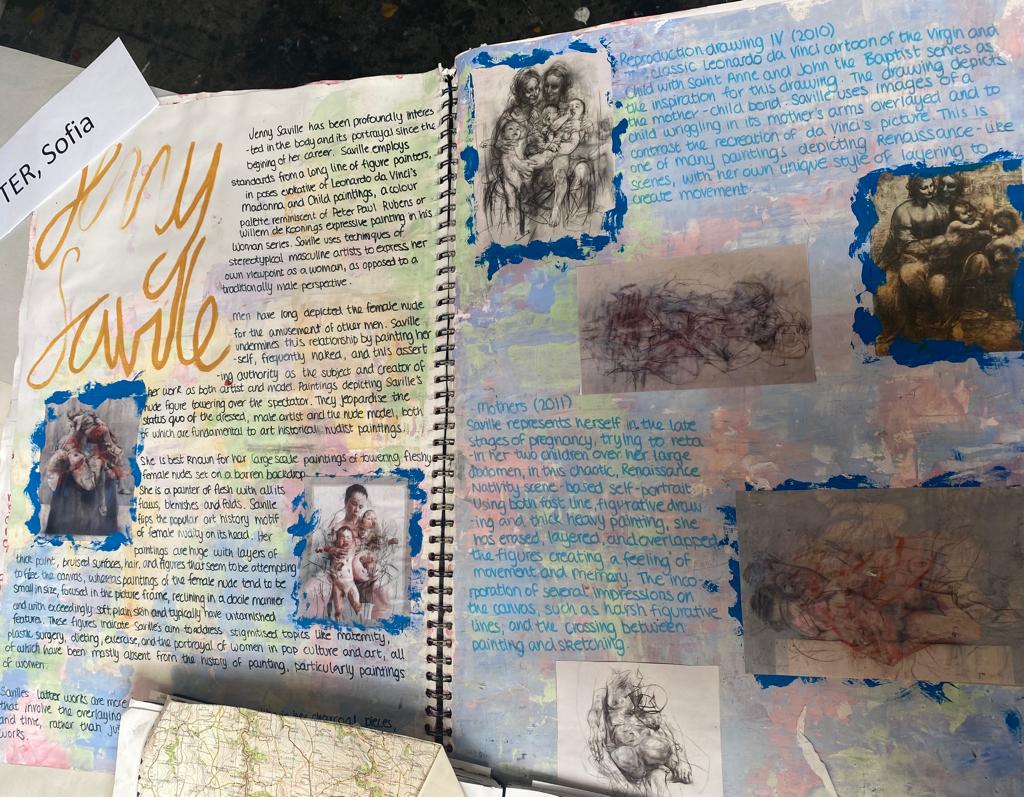 TER, Sofia
Jenny
Saville
Jenny Saville has been profoundly interes
-ted in the body and its portrayal since the
begining of her career. Saville employs
standards from a long line of figure painters,
in poses evokative of Leonardo da Vinci's
madonna and Child paintings, a colour
palette reminiscent of Peter Paul Rubens or
Willem de Koonings expressive painting in his
Woman series. Saville uses techniques of
stereotypical masculine artists to express her
own viewpoint as a woman, as opposed to a
traditionally male perspective.
men have long depicted the female nude
for the amusement of other men. Saville
undermines this relationship by painting her
-self, frequently naked, and this assert
-ing authority as the subject and creator of
her work as both artist and model. Paintings depicting Saville's
nude figure towering over the spectator. They jeopardise the
status quo of the dressed, male artist and the nude model, both
of which are fundamental to art historical nudist paintings.
She is best known for her large scale paintings of towering, fleshy
female nudes set on a barren backdrop.
She is a painter of flesh with all its
flaws, blemishes and folds. Saville
flips the popular art history motif
of female nudity on its head. Her
paintings are huge with layers of
thick paint, bruised surfaces, hair, and figures that seem to be attempting
to flee the canvas, whereas paintings of the female nude tend to be
small in size, focused in the picture frame, reclining in a docile manner
and with exceedingly soft plain skin and typically have untarnished
features. These figures indicate Saville's aim to address stigmitised topics like maternity,
plastic surgery, dieting, exercise, and the portrayal of women in pop culture and art, all
of which have been mostly absent from the history of painting, particularly paintings
of women.
Savilles latter works are more
that involve the overlaying
and time, rather than
works.
is her charcoal pieces,
Reproduction drawing IV (2010)
The classic Leonardo da Vinci cartoon of the Virgin and
Child with Saint Anne and John the Baptist serves as
the inspiration for this drawing. The drawing depicts
the mother-child bond. Saville uses images of a
child wriggling in its mother's arms overlayed and to
contrast the recreation of da Vinci's picture. This is
one of many paintings depicting Renaissance-like
scenes, with her own unique style of layering to
create movement.
mothers (2011)
Saville represents herself in the late
stages of pregnancy, trying to reta
-in her two children over her large
abdomen, in this chaotic, Renaissance
Nativity scene-based self-portrait.
Using both fast line, figurative draw
-ing and thick heavy painting, she
has erased, layered, and overlapped
the figures creating a feeling of
movement and memory. The inco
poration of several impressions on
the canvas, such as harsh figurative
lines, and the crossing between
painting and sketching.